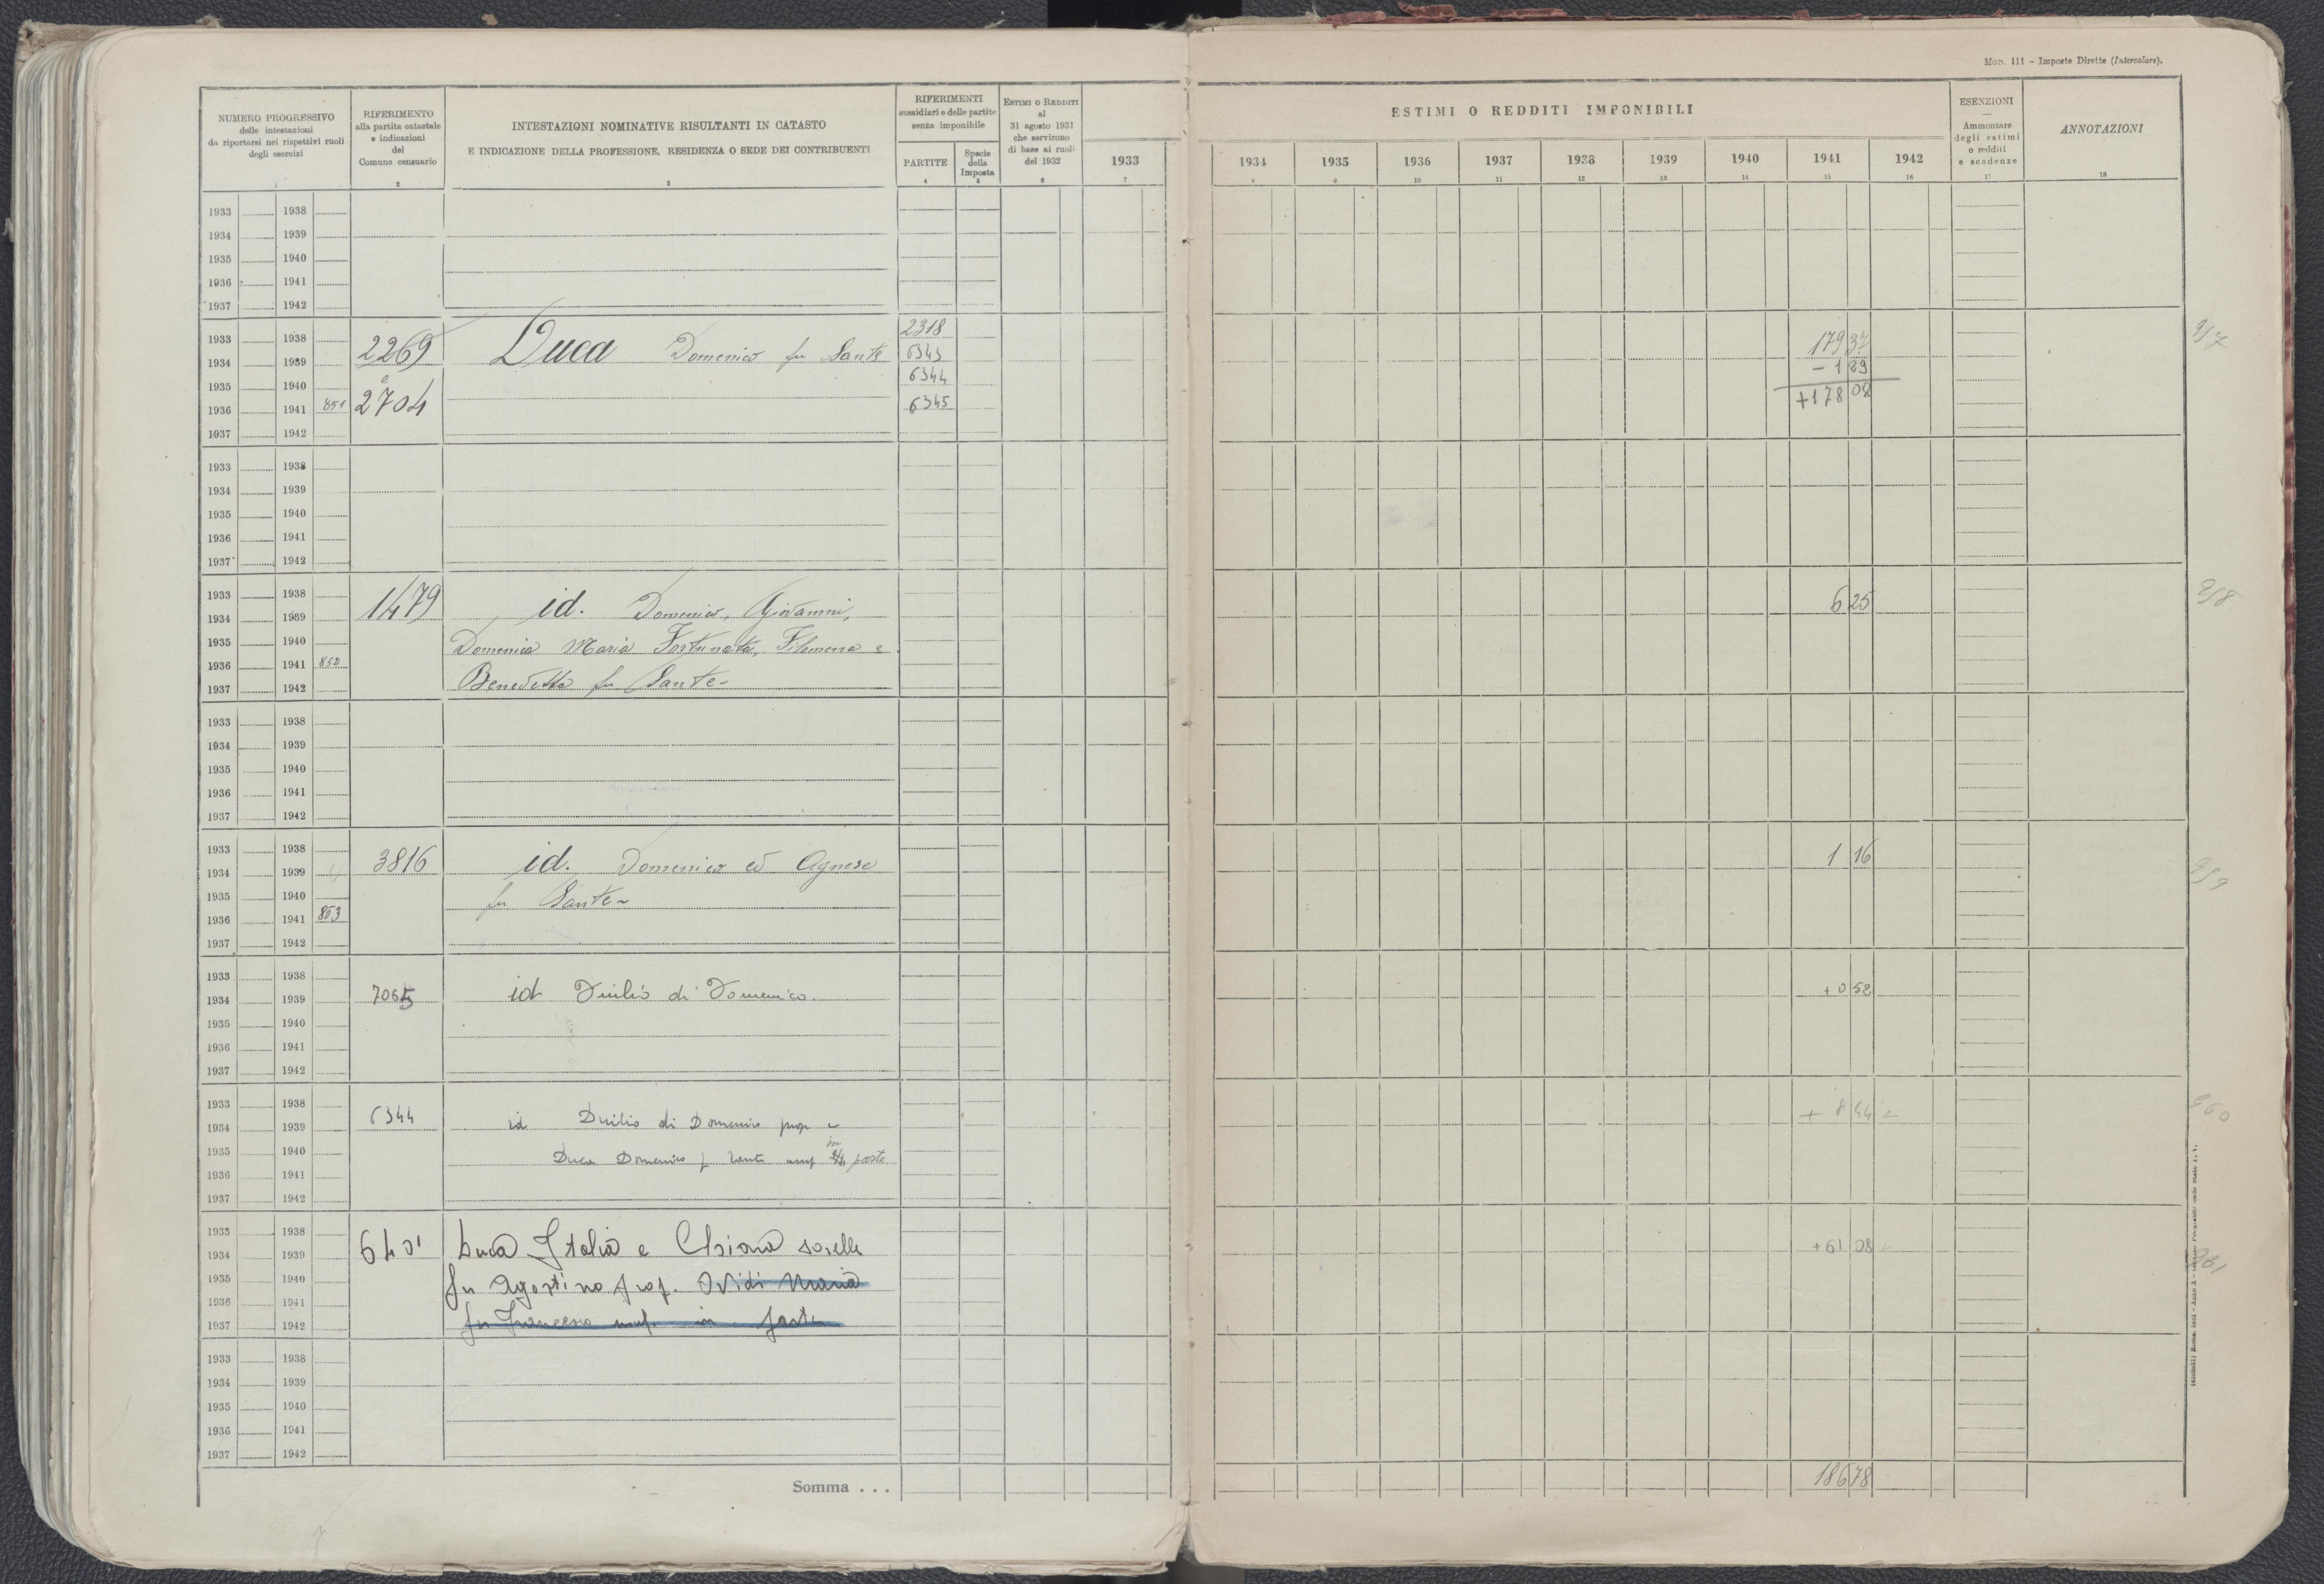 Mod. 111 - Imposte Dirette (Intercalare).
NUMERO PROGRESSIVO
delle intestazioni
da riportarsi nei rispettivi ruoli
degli esercizi
1
RIFERIMENTO
alla partita catastale
e indicazioni
del
Comune censuario
2
INTESTAZIONI NOMINATIVE RISULTANTI IN CATASTO
E INDICAZIONE DELLA PROFESSIONE, RESIDENZA O SEDE DEI CONTRIBUENTI
3
RIFERIMENTI
sussidiari e delle partite
senza imponibile
PARTITE
4
Specie
della
Imposta
5
ESTIMI O REDDITI
al
31 agosto 1931
che servirono
di base ai ruoli
del 1932
6
ESTIMI O REDDITI IMPONIBILI
1933 1934 1935 1936 1937 1938 1939 1940 1941 1942
7 8 9 10 11 12 13 14 15 16
ESENZIONI
Ammontare
degli estimi
o redditi
e scadenze
17
ANNOTAZIONI
18
1933 1938
1934 1939
1935 1940
1936 1941
1937 1942
1933 1938 2269 Duca Domenico fu Sante 2318 179 37
1934 1939 6343 - 1 29
1935 1940 e 6344 +178 08
1936 1941 851 2704 6345
1937 1942
1933 1938
1934 1939
1935 1940
1936 1941
1937 1942
1933 1938 1479 id. Domenico, Giovanni, 6 25
1934 1939
1935 1940 Domenica Maria Fortunata, Filomena e
1936 1941 852
1937 1942 Benedetta fu Sante-
1933 1938
1934 1939
1935 1940
1936 1941
1937 1942
1933 1938 3816 id. Domenico ed Agnese 1 16
1934 1939
1935 1940 fu Sante-
1936 1941 853
1937 1942
1933 1938
1934 1939 7065 id Duilio di Domenico. + 0 52
1935 1940
1936 1941
1937 1942
1933 1938 6344
1934 1939 id Duilio di Domenico prop e + 8 44
1935 1940 in
Duca Domenico f Sante usuf parte
1936 1941
1937 1942
1933 1938 6401 Duca Italia e Chiara sorelle +61 08
1934 1939
1935 1940 fu Agostino prop. Ovidi Maria
1936 1941
1937 1942 fu Francesco usuf. in parte
1933 1938
1934 1939
1935 1940
1936 1941
1937 1942
Somma . . . 186 78